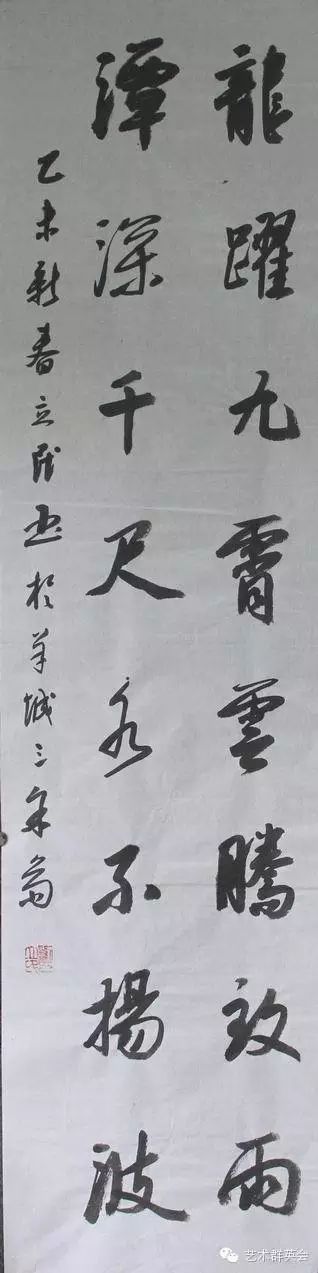 龍躍九霄雲騰致雨
潭深千尺水不揚波
乙未新春立書於羊城三
艺术群英会